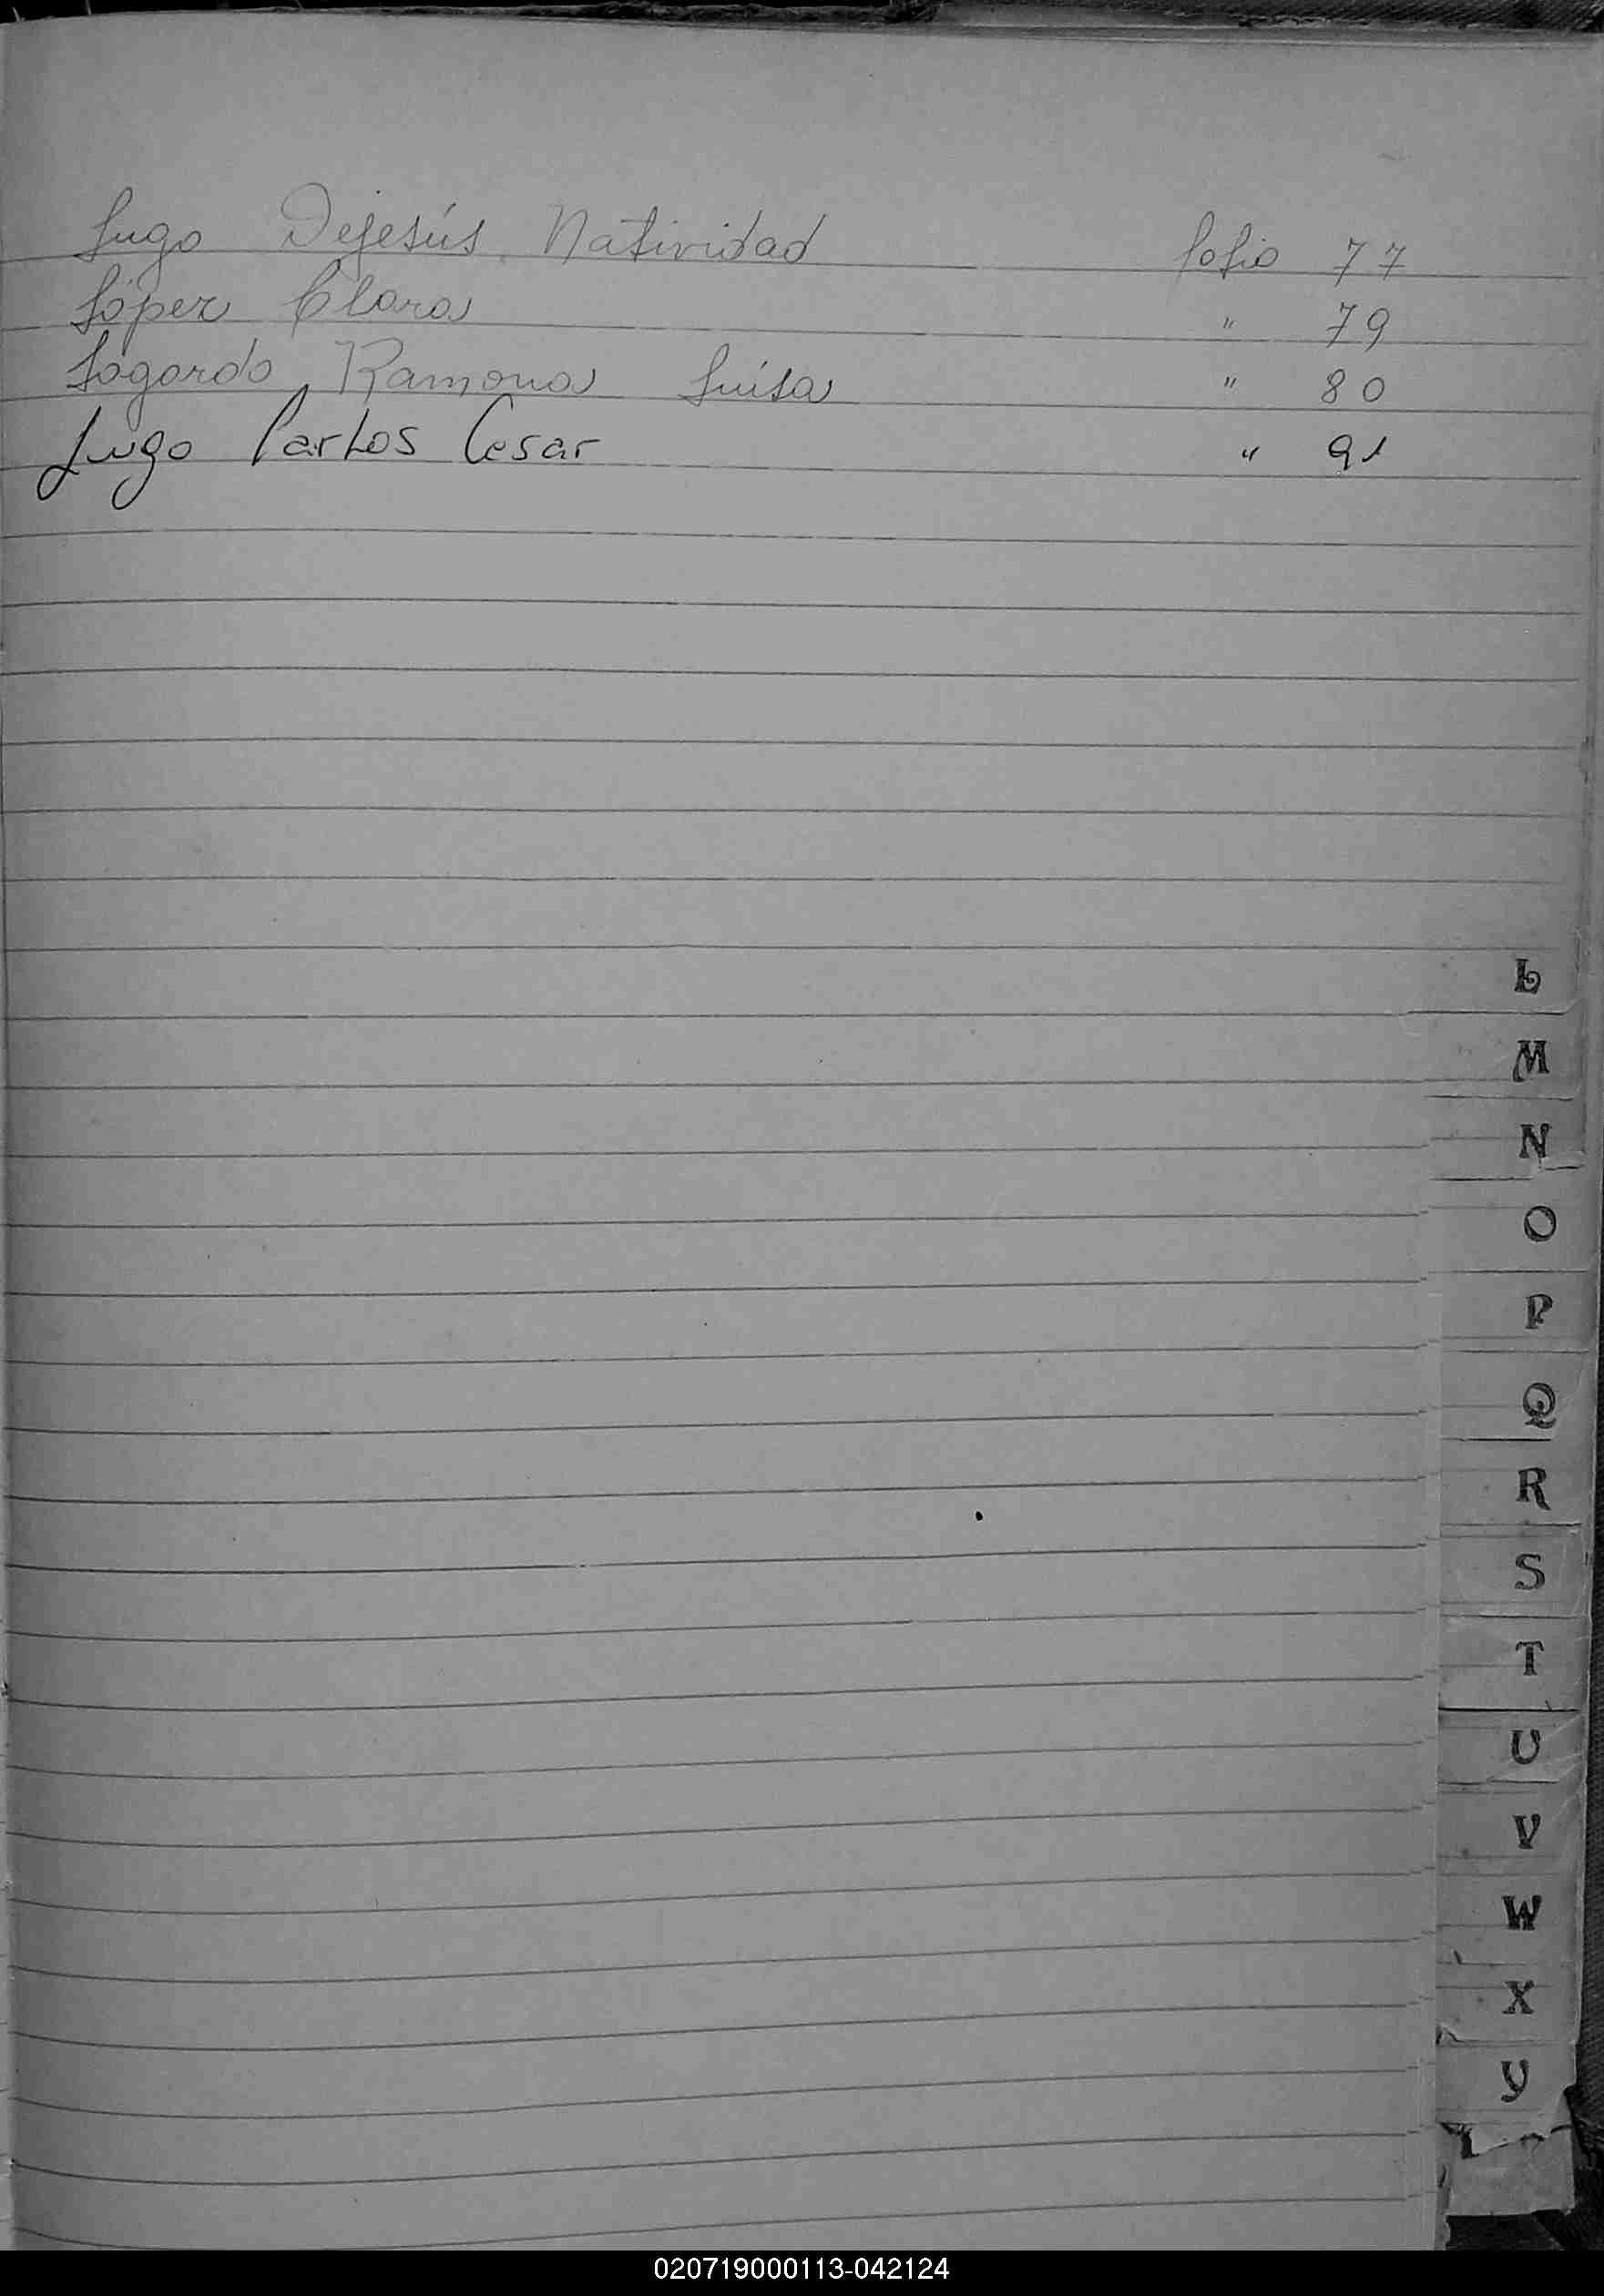 Lugo Dejesús Natividad folio 77
López Clara " 79
Logardo Ramona Luisa " 80
Lugo Carlos Cesar " 91
L
M
N
O
P
Q
R
S
T
U
V
W
X
Y
020719000113-042124